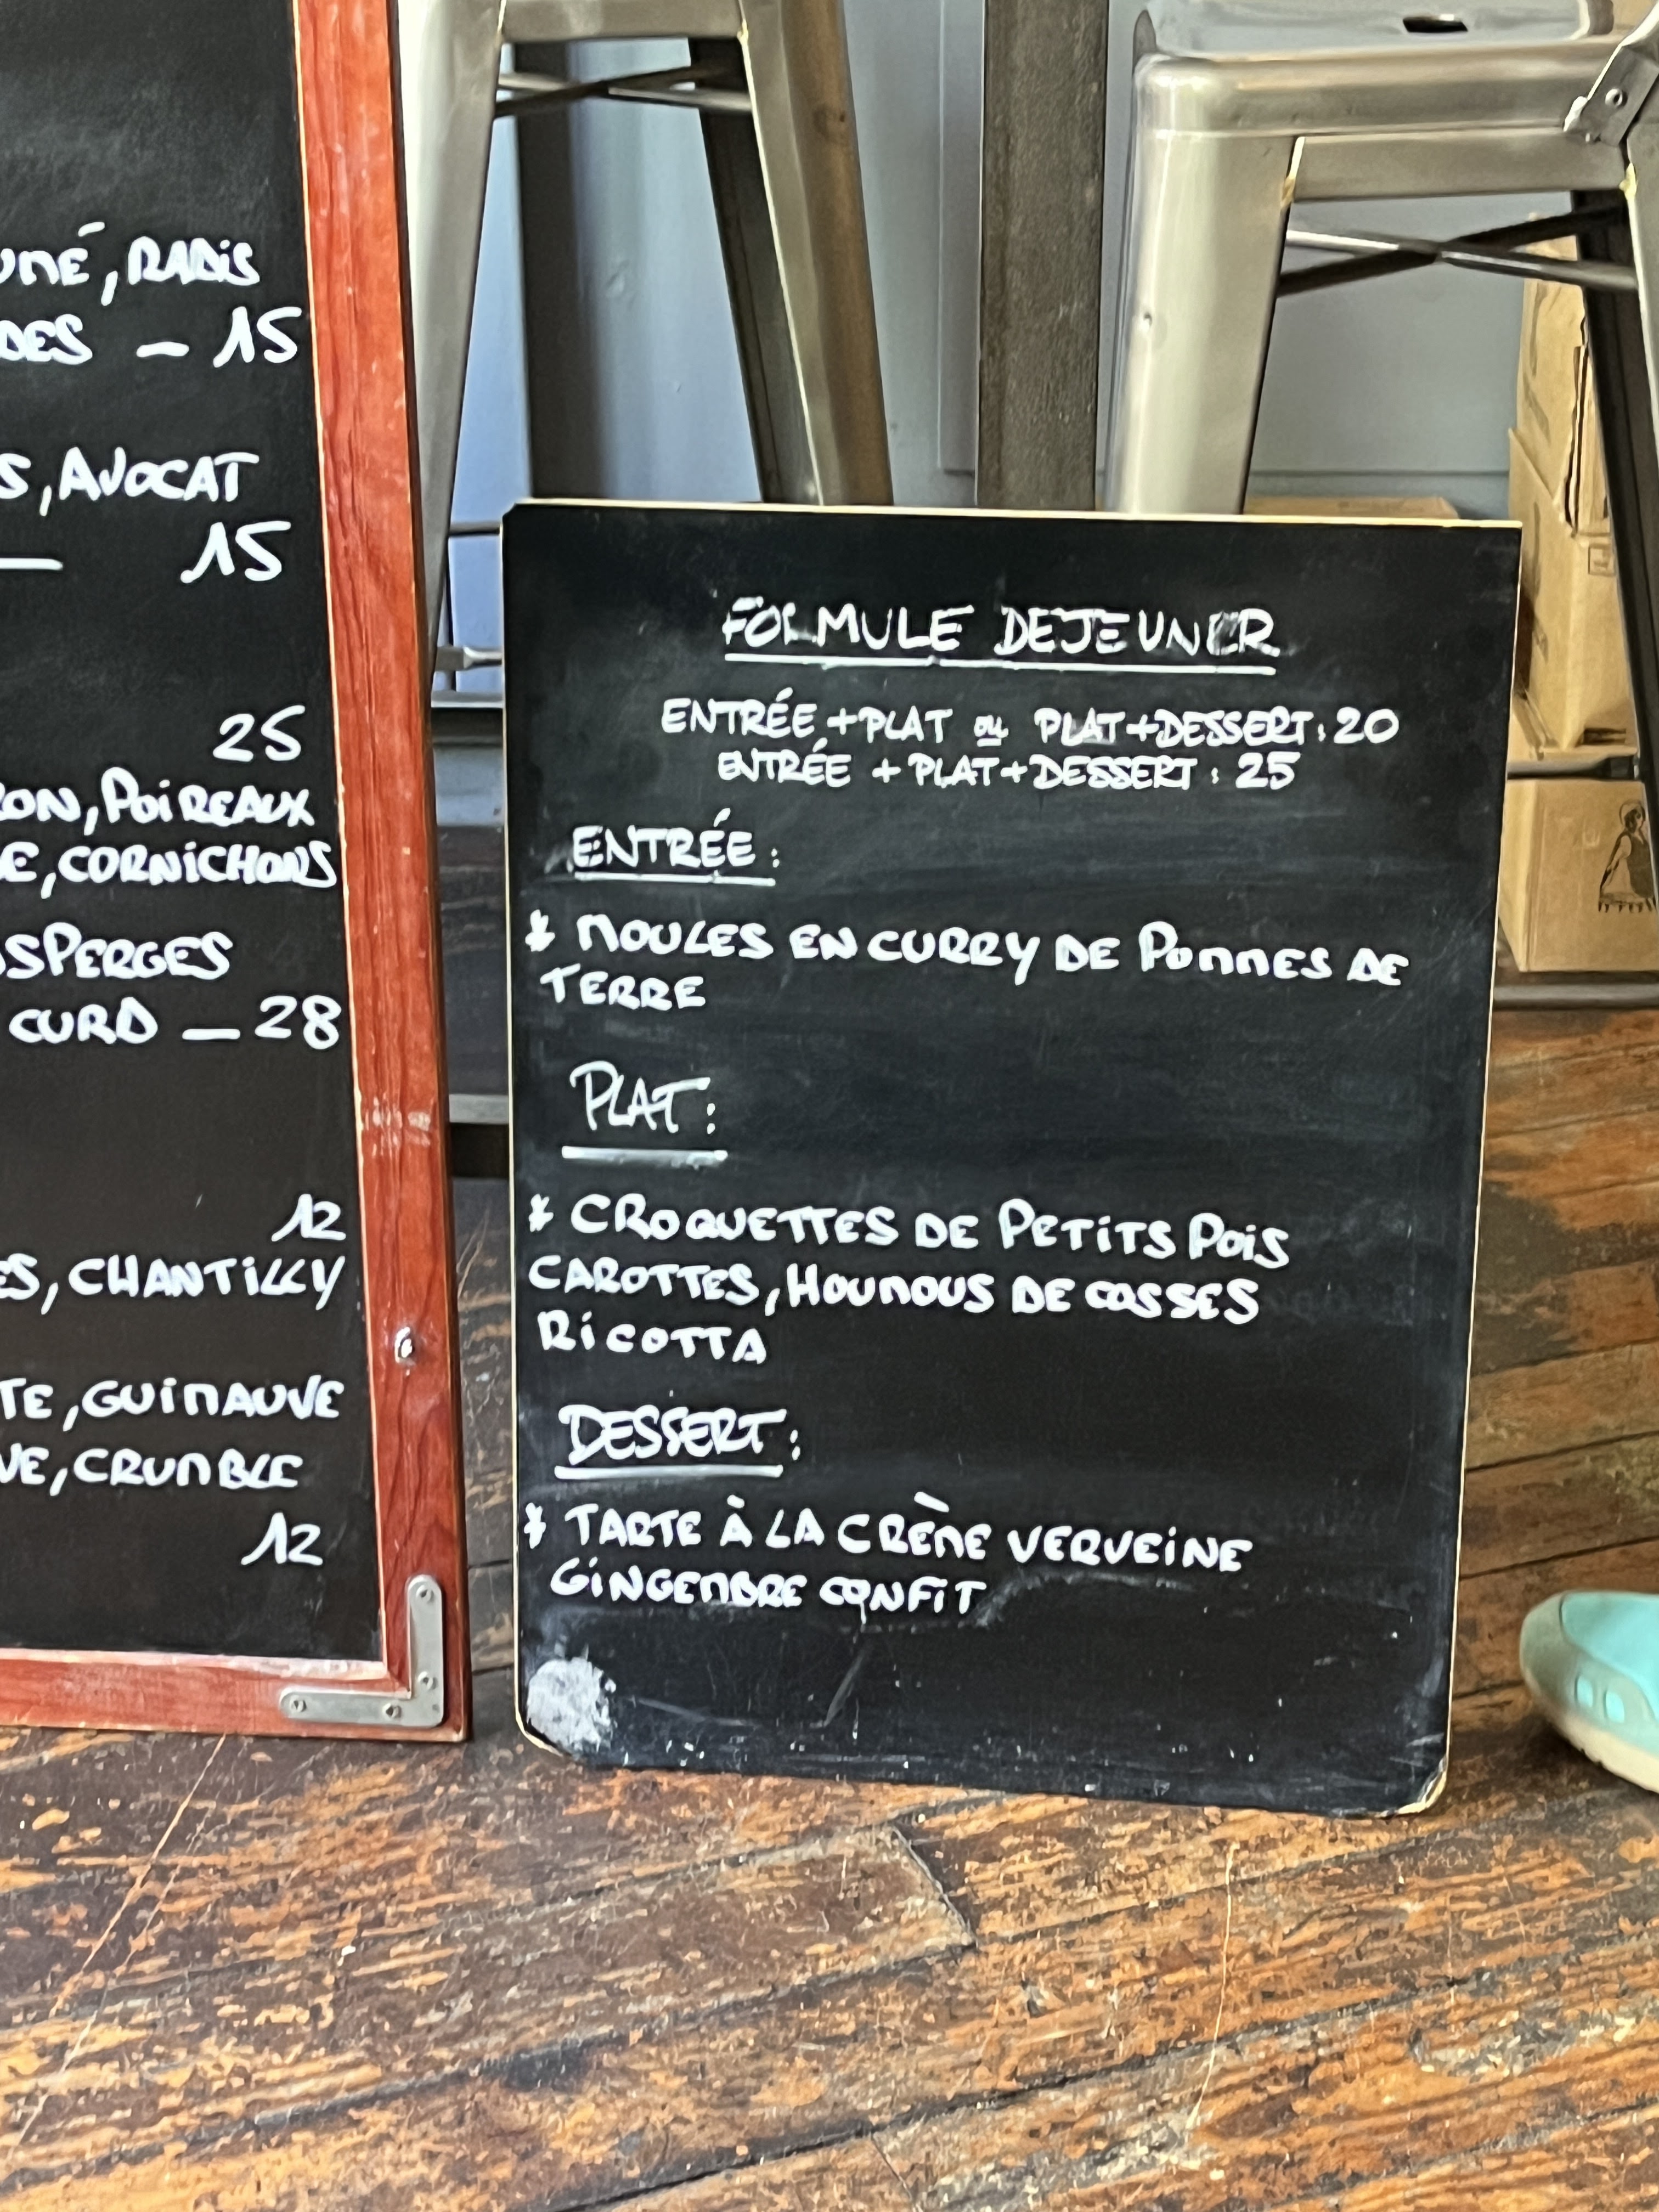 UMÉ, RADIS
DES — 15
S, AVOCAT
— 15
25
RON, POIREAUX
E, CORNICHONS
SPERGES
CURD — 28
12
ES, CHANTILLY
TE, GUIMAUVE
VE, CRUMBLE
12
FORMULE DEJEUNER
ENTRÉE + PLAT ou PLAT + DESSERT : 20
ENTRÉE + PLAT + DESSERT : 25
ENTRÉE :
* MOULES EN CURRY DE POMMES DE
TERRE
PLAT :
* CROQUETTES DE PETITS POIS
CAROTTES, HOUMOUS DE COSSES
RICOTTA
DESSERT :
* TARTE À LA CRÈME VERVEINE
GINGEMBRE CONFIT